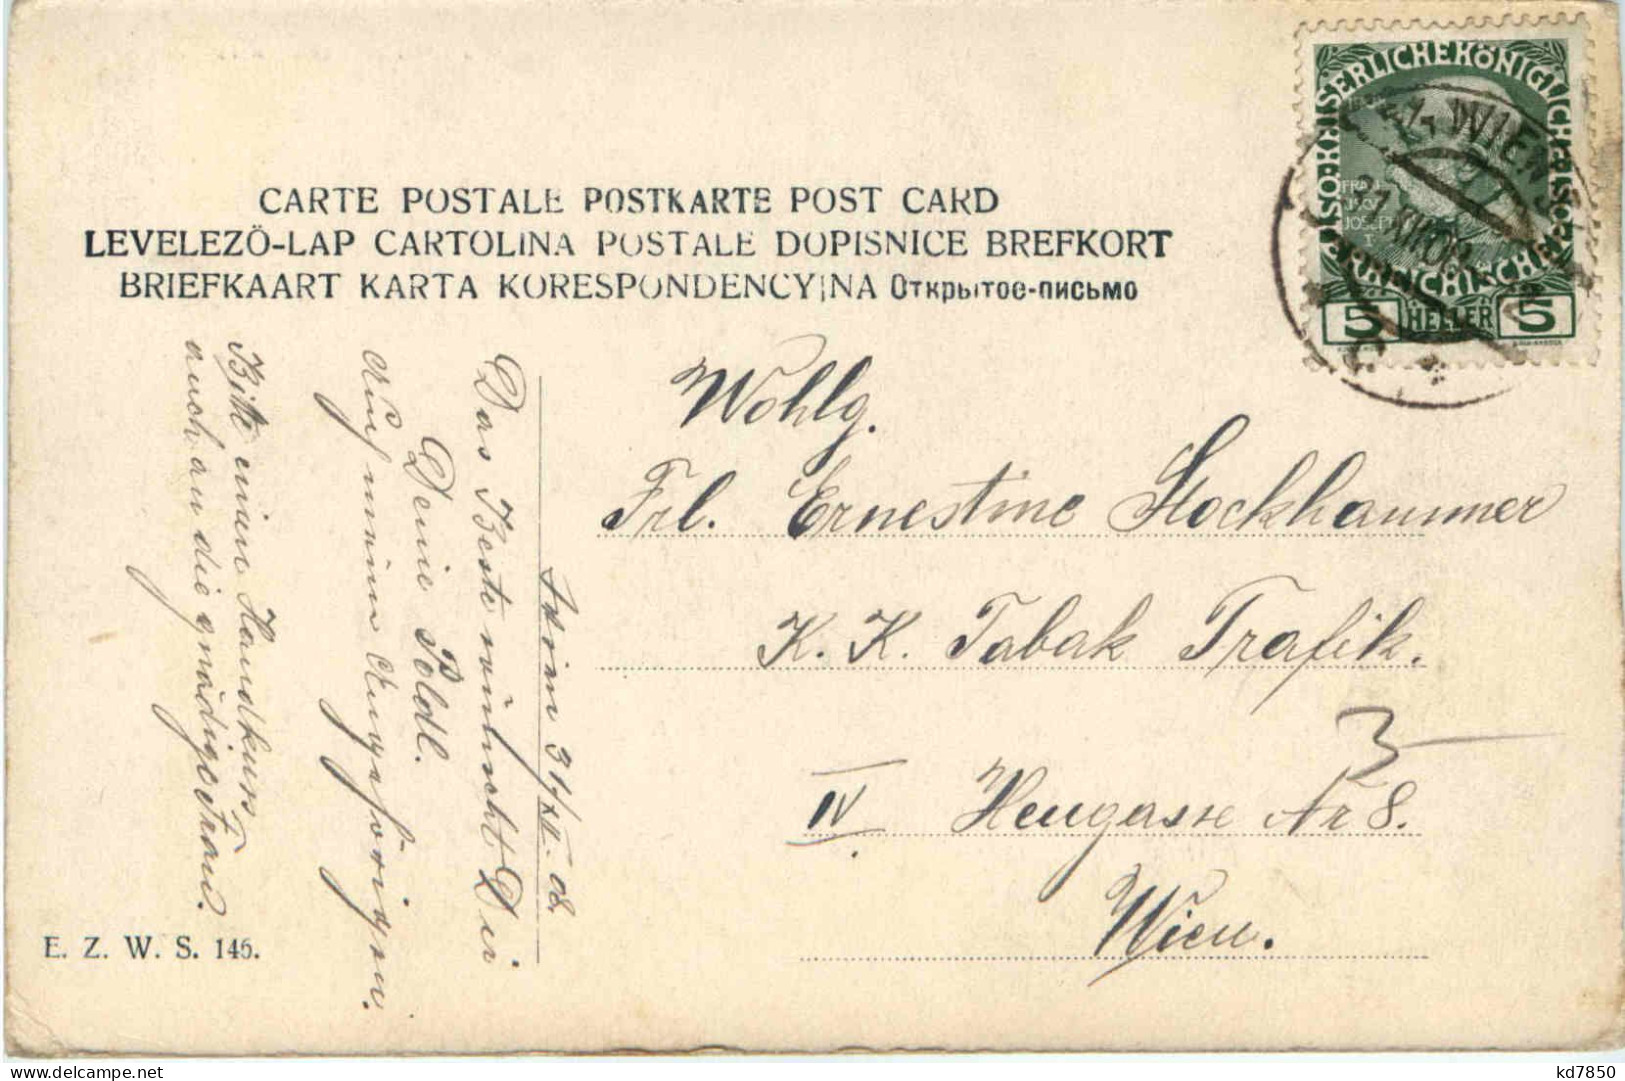 CARTE POSTALE POSTKARTE POST CARD
LEVELEZÖ-LAP CARTOLINA POSTALE DOPISNICE BREFKORT
BRIEFKAART KARTA KORESPONDENCYJNA Открытое-письмо
KAISERLICHEKÖNIGLICHE
ÖSTERREICHISCHE
FRANZ
JOSEPH
I
5 HELLER 5
WIEN
Wohlg.
Frl. Ernestine Stockhammer
K. K. Tabak Trafik.
3
IV Heugasse Nr 8.
Wien.
31/XII. 08.
Das Beste wünscht Dir
Deine Poldl.
Auch meine Angehörigen.
Bitte einen Handkuss
auch an die gnädige Frau.
E. Z. W. S. 145.
kd7850